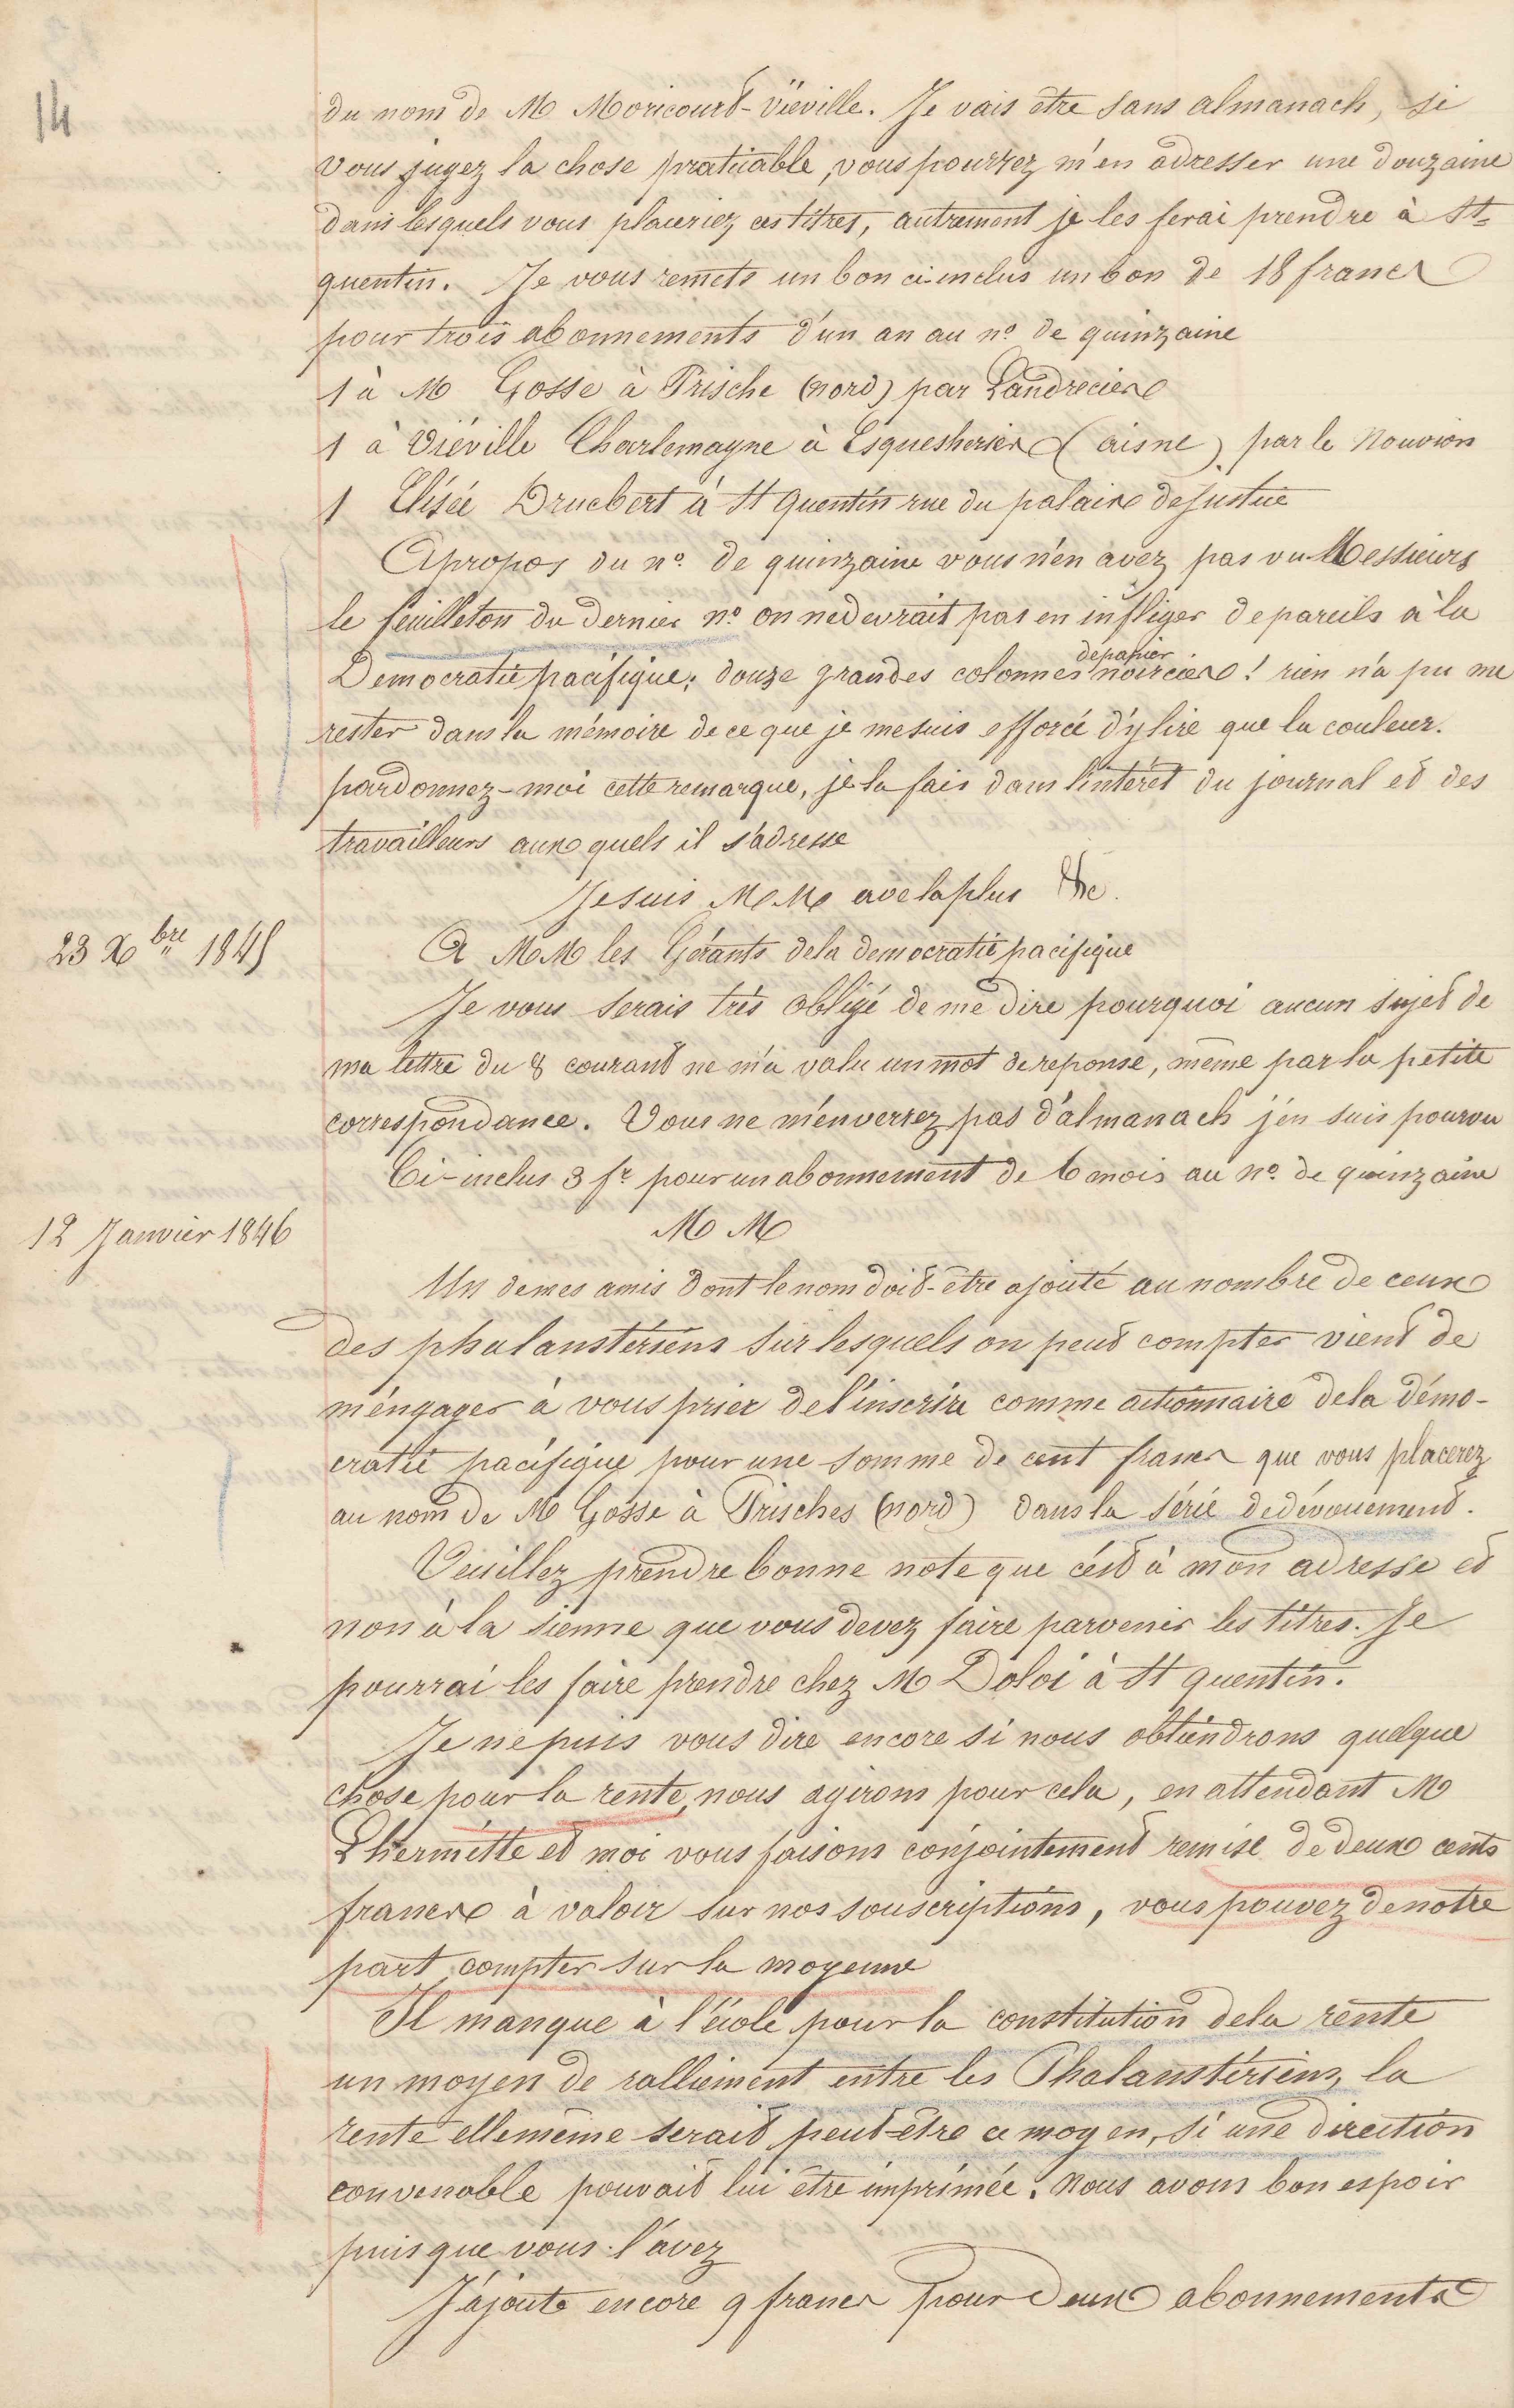 14
du nom de M Moricourt-Viéville. Je vais être sans almanach, si
vous jugez la chose praticable, vous pourrez m'en adresser une douzaine
dans lesquels vous placeriez ces titres, autrement je les ferai prendre à St
quentin. Je vous remets un bon ci-inclus un bon de 18 francs
pour trois abonnements d'un an au n° de quinzaine
1 à M Gosse à Prische (nord) par Landrecies
1 à Viéville Charlemagne à Esqueheries (aisne) par le Nouvion
1 Elisée Druebert à St Quentin rue du palais de Justice
Apropos du n° de quinzaine vous n'en avez pas vu Messieurs
le feuilleton du dernier n° on ne devrait pas en infliger de pareils à la
Democratie pacifique; douze grandes colonnes de papier noircies! rien n'a pu me
rester dans la mémoire de ce que je me suis efforcé d'y lire que la couleur.
pardonnez-moi cette remarque, je la fais dans l'intérêt du journal et des
travailleurs auxquels il s'adresse
Je suis M M avec la plus &c.
23 Xbre 1845
A M M les Gérants de la democratie pacifique
Je vous serais très obligé de me dire pourquoi aucun sujet de
ma lettre du 8 courant ne m'a valu un mot de reponse, même par la petite
correspondance. Vous ne m'enverrez pas d'almanach j'en suis pourvu
Ci-inclus 3 fr pour un abonnement de 6 mois au n° de quinzaine
12 Janvier 1846
M M
Un de mes amis dont le nom doit-être ajouté au nombre de ceux
des phalanstériens sur lesquels on peut compter vient de
m'engager à vous prier de l'inscrire comme actionnaire de la démo-
cratie pacifique pour une somme de cent francs que vous placerez
au nom de M Gosse à Prisches (nord) dans la série de dévouement.
Veuillez prendre bonne note que c'est à mon adresse et
non à la sienne que vous devez faire parvenir les titres. Je
pourrai les faire prendre chez M Doloi à St quentin.
Je ne puis vous dire encore si nous obtiendrons quelque
chose pour la rente, nous agirons pour cela, en attendant M
Lhermitte et moi vous faisons conjointement remise de deux cents
francs à valoir sur nos souscriptions, vous pouvez de notre
part compter sur la moyenne
Il manque à l'école pour la constitution de la rente
un moyen de ralliement entre les Phalanstériens, la
rente ellemême serait peut-être ce moyen, si une direction
convenable pouvait lui être imprimée. Nous avons bon espoir
puisque vous l'avez
J'ajoute encore 9 francs pour deux abonnements